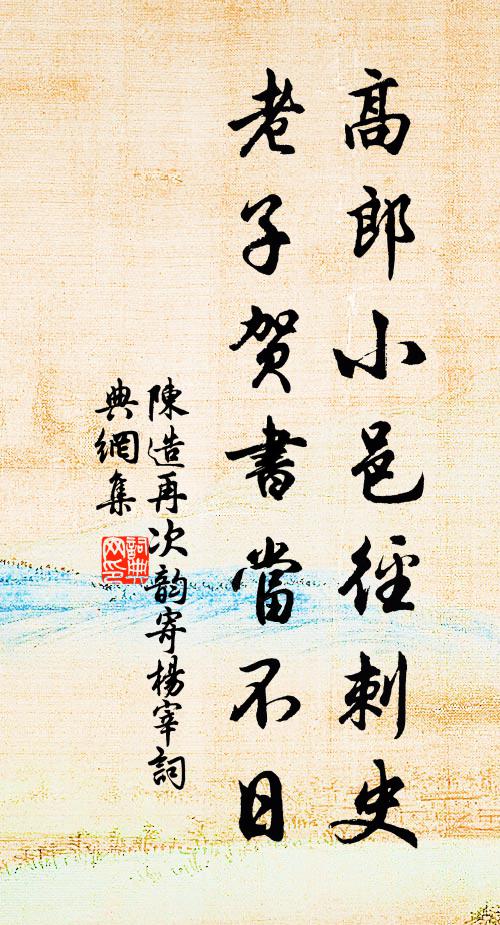 高郎小邑徑刺史
老子贺書當不日
陳造再次韵寄楊宰詞
典網集
詞典
网印